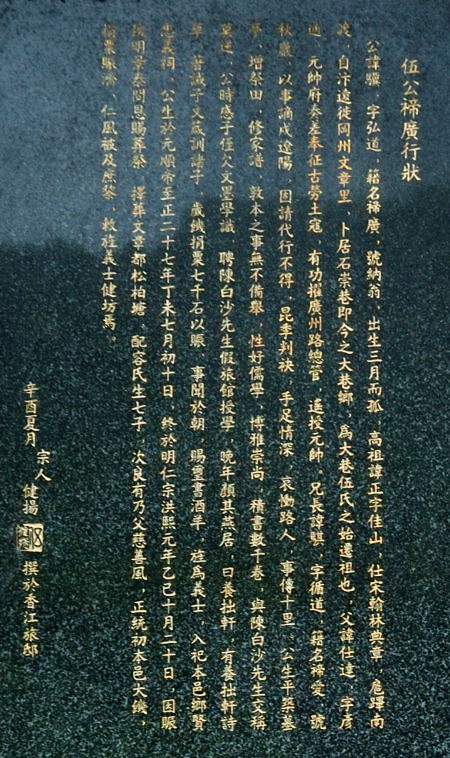 伍公禘廣行狀
公諱驥，字弘道，籍名禘廣，號納翁，出生三月而孤，高祖諱正字佳山，仕宋翰林典章，扈蹕南
渡，自汴遠徙岡州文章里，卜居石崇巷即今之大巷鄉，為大巷伍氏之始遷祖也，父諱仕達，字彥
，元帥府奏差奉征古勞土寇，有功擢廣州路總管，遙授元帥。兄長諱騏，字循道，籍名禘愛，號
秋巖，以事謫戍遼陽，固請代行不得，昆季判袂，手足情深，哀慟路人，事傳十里，公生平築墓
亭，增祭田，修家譜，敦本之事無不備舉，性好儒學，博雅崇尚，積書數千卷，與陳白沙先生交稱
莫逆，公時患子侄欠文墨學識，聘陳白沙先生假旅館授學，晚年顏其燕居，曰養拙軒，有養拙軒詩
草，著誡子文箴訓諸子，歲饑捐粟七千石以賑，事聞於朝，賜璽書酒羊，旌為義士，入祀本邑鄉賢
忠義祠，公生於元順帝至正二十七年丁未七月初十日，終於明仁宗洪熙元年乙巳十月二十日，因賑
饑明景泰間恩賜葬祭，擇葬文章都松柏塘，配容氏生七子，次良有乃父慈善風，正統初本邑大饑，
輸粟賑濟，仁風被及庶黎，敕旌義士健坊焉。
辛酉夏月 宗人 健揚 撰於香江旅邸